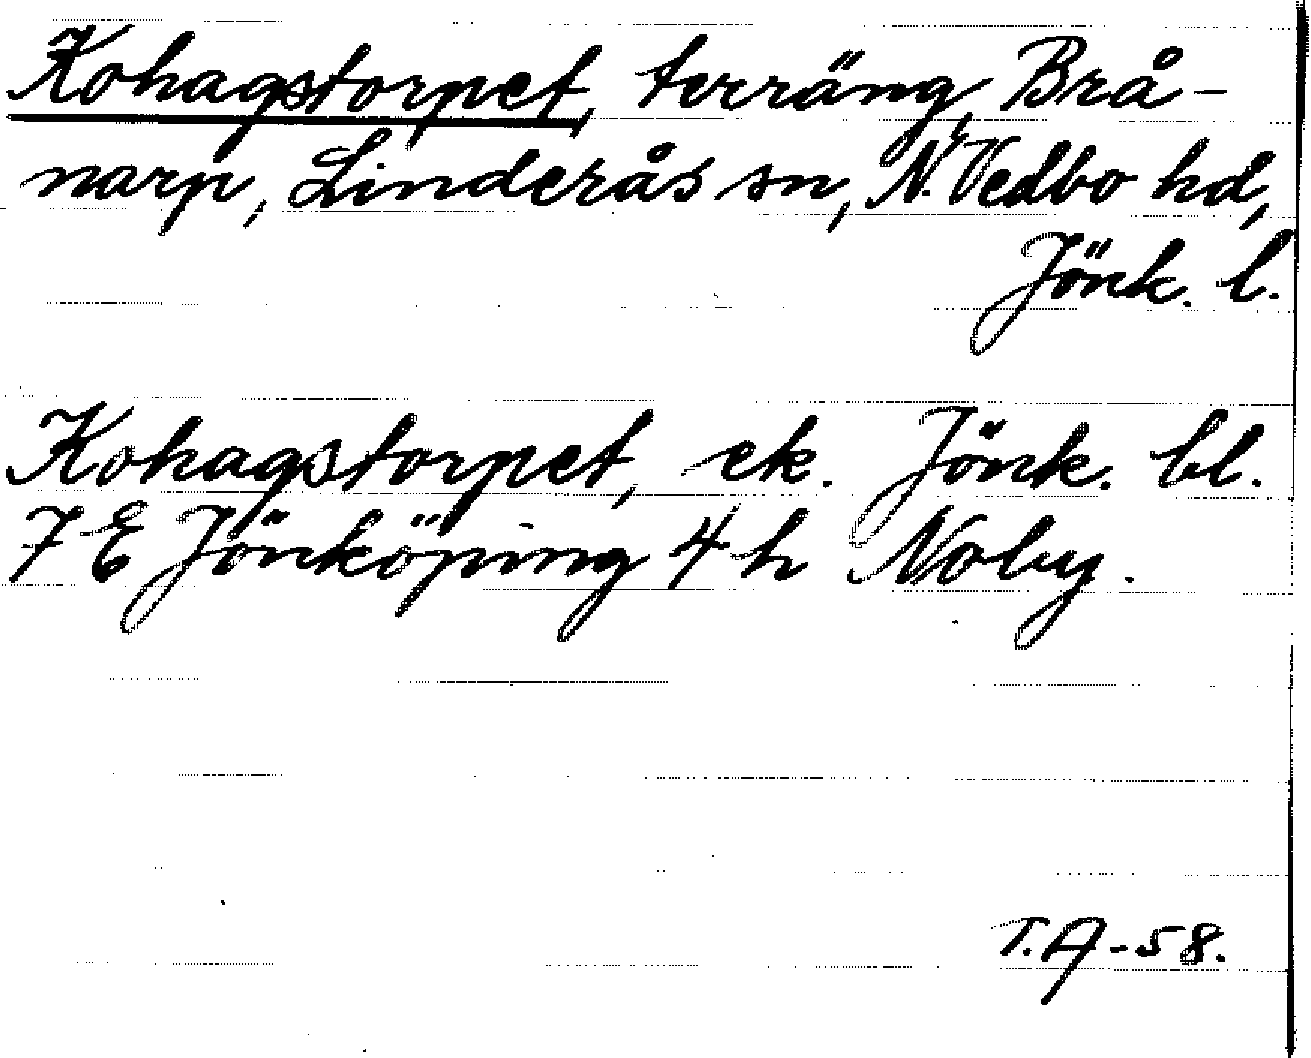 Kohagstorpet, terräng, Brå-
narp, Linderås sn, N. Vedbo hd,
Jönk. l.
Kohagstorpet, ek. Jönk. bl.
7 E Jönköping 4 h Noby.
T.A-58.